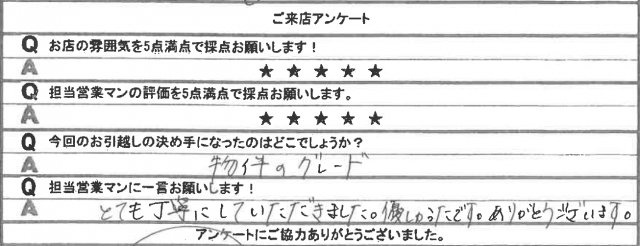 ご来店アンケート
Q お店の雰囲気を5点満点で採点お願いします!
A ★★★★★
Q 担当営業マンの評価を5点満点で採点お願いします。
A ★★★★★
Q 今回のお引越しの決め手になったのはどこでしょうか?
A 物件のグレード
Q 担当営業マンに一言お願いします!
A とても丁寧にしていただきました。優しかったです。ありがとうございます。
アンケートにご協力ありがとうございました。